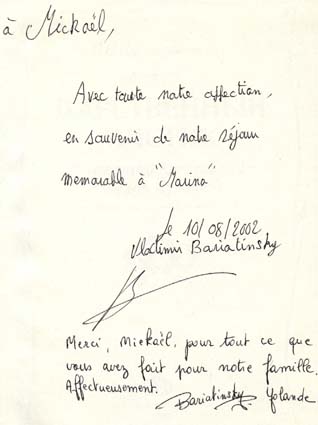 à Mickaël,
Avec toute notre affection,
en souvenir de notre séjour
memorable à "Marina"
le 10/08/2002
Vladimir Bariatinsky
Merci, Mickaël, pour tout ce que
vous avez fait pour notre famille.
Affectueusement.
Bariatinsky Yolande